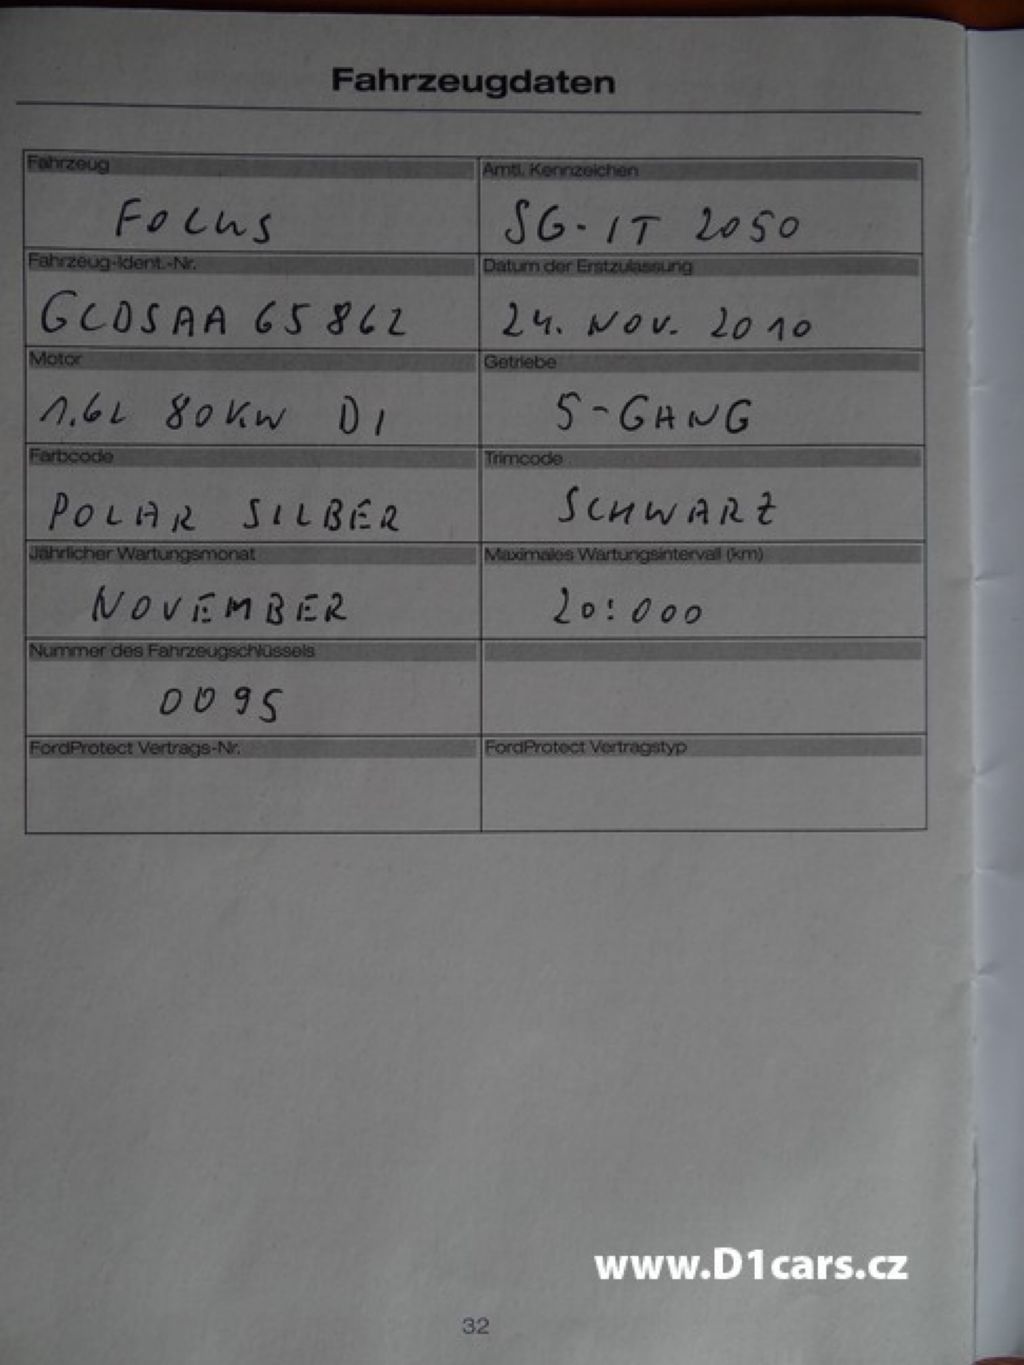 Fahrzeugdaten
Fahrzeug
Amtl. Kennzeichen
FOCUS
SG-IT 2050
Fahrzeug-Ident.-Nr.
Datum der Erstzulassung
GCDSAA 65862
24. NOV. 2010
Motor
Getriebe
1.6L 80KW DI
5-GANG
Farbcode
Trimcode
POLAR SILBER
SCHWARZ
Jährlicher Wartungsmonat
Maximales Wartungsintervall (km)
NOVEMBER
20:000
Nummer des Fahrzeugschlüssels
0095
FordProtect Vertrags-Nr.
FordProtect Vertragstyp
www.D1cars.cz
32